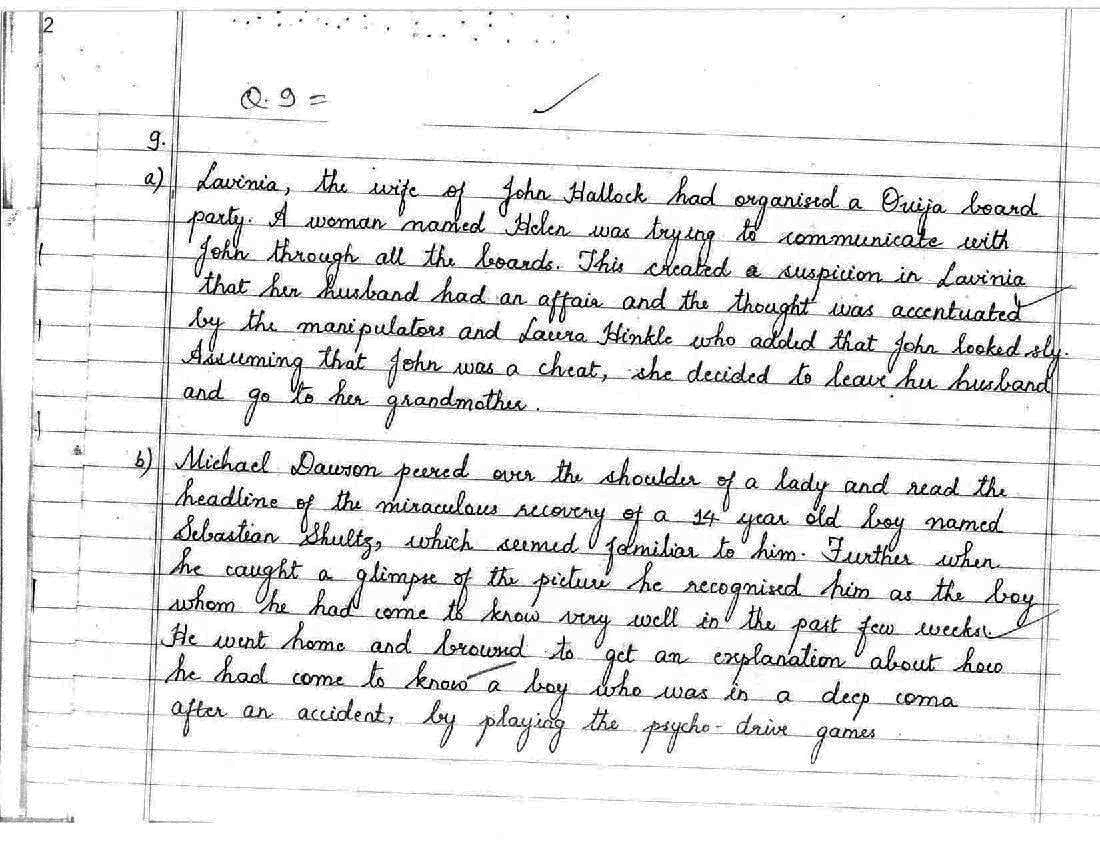 2
Q. 9 =
9.
a) Lavinia, the wife of John Hallock had organised a Ouija board
party. A woman named Helen was trying to communicate with
John through all the boards. This created a suspicion in Lavinia
that her husband had an affair and the thought was accentuated
by the manipulators and Laura Hinkle who added that John looked sly.
Assuming that John was a cheat, she decided to leave her husband
and go to her grandmother.
b) Michael Dawson peered over the shoulder of a lady and read the
headline of the miraculous recovery of a 14 year old boy named
Sebastian Shultz, which seemed familiar to him. Further when
he caught a glimpse of the picture he recognised him as the boy
whom he had come to know very well in the past few weeks.
He went home and browsed to get an explanation about how
he had come to know a boy who was in a deep coma
after an accident, by playing the psycho-drive games